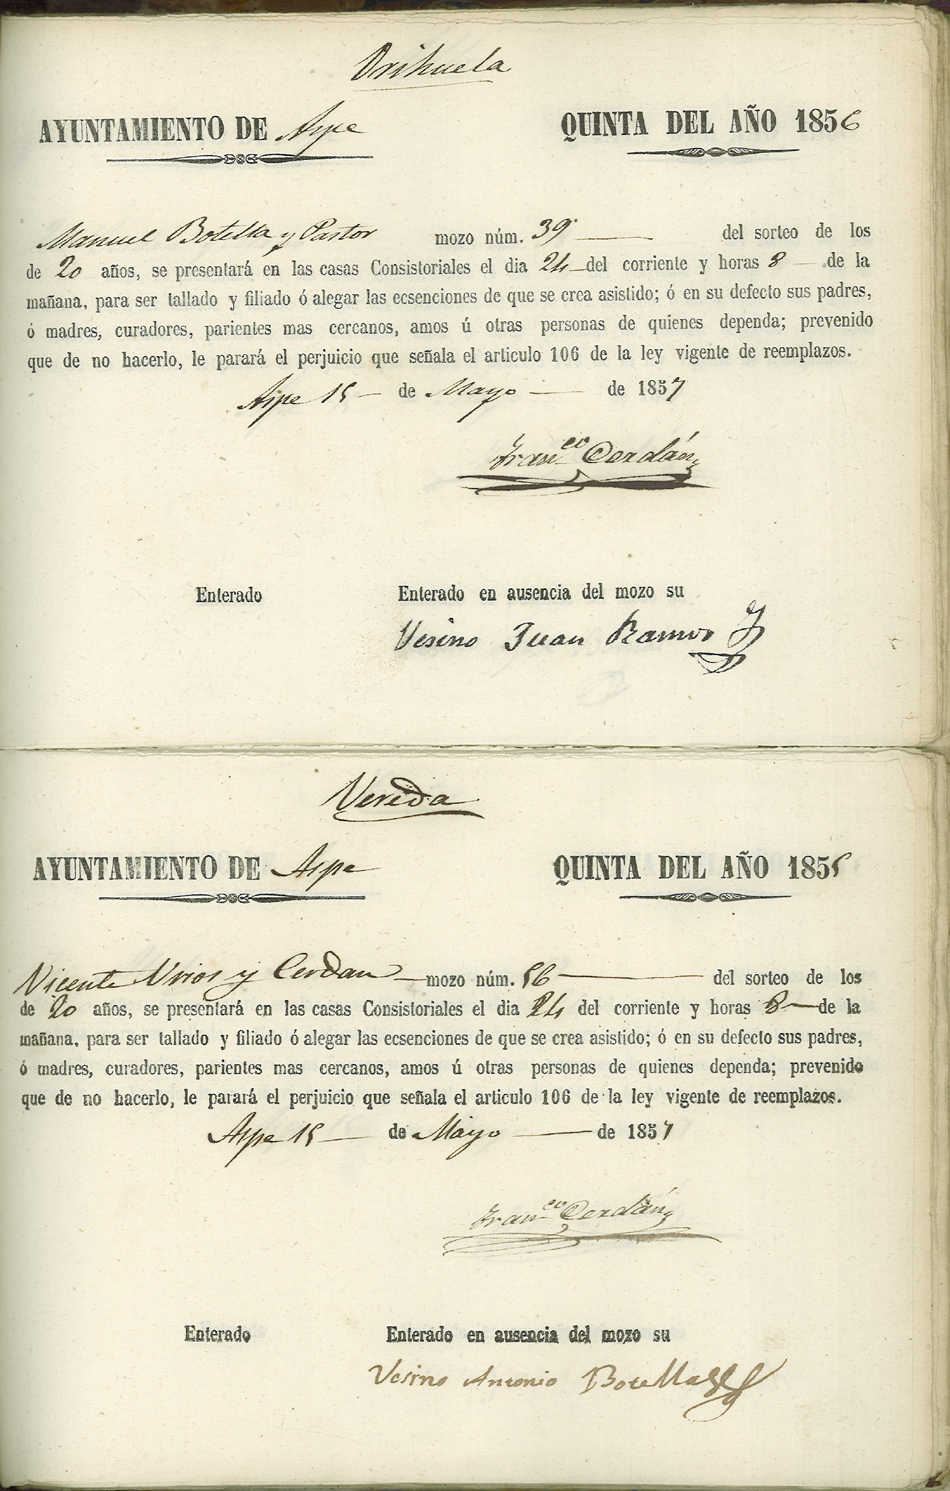 Orihuela
AYUNTAMIENTO DE Aspe
QUINTA DEL AÑO 1856
Manuel Botella y Pastor mozo núm. 39 del sorteo de los
de 20 años, se presentará en las casas Consistoriales el dia 24 del corriente y horas 8 de la
mañana, para ser tallado y filiado ó alegar las ecsenciones de que se crea asistido; ó en su defecto sus padres,
ó madres, curadores, parientes mas cercanos, amos ú otras personas de quienes dependa; prevenido
que de no hacerlo, le parará el perjuicio que señala el articulo 106 de la ley vigente de reemplazos.
Aspe 15 de Mayo de 1857
Franco Cerdán
Enterado
Enterado en ausencia del mozo su
Vesino Juan Ramos
Vereda
AYUNTAMIENTO DE Aspe
QUINTA DEL AÑO 185
Vicente Urios y Cerdan mozo núm. 56 del sorteo de los
de 20 años, se presentará en las casas Consistoriales el dia 24 del corriente y horas 8 de la
mañana, para ser tallado y filiado ó alegar las ecsenciones de que se crea asistido; ó en su defecto sus padres,
ó madres, curadores, parientes mas cercanos, amos ú otras personas de quienes dependa; prevenido
que de no hacerlo, le parará el perjuicio que señala el articulo 106 de la ley vigente de reemplazos.
Aspe 15 de Mayo de 1857
Franco Cerdán
Enterado
Enterado en ausencia del mozo su
Vesino Antonio Botella